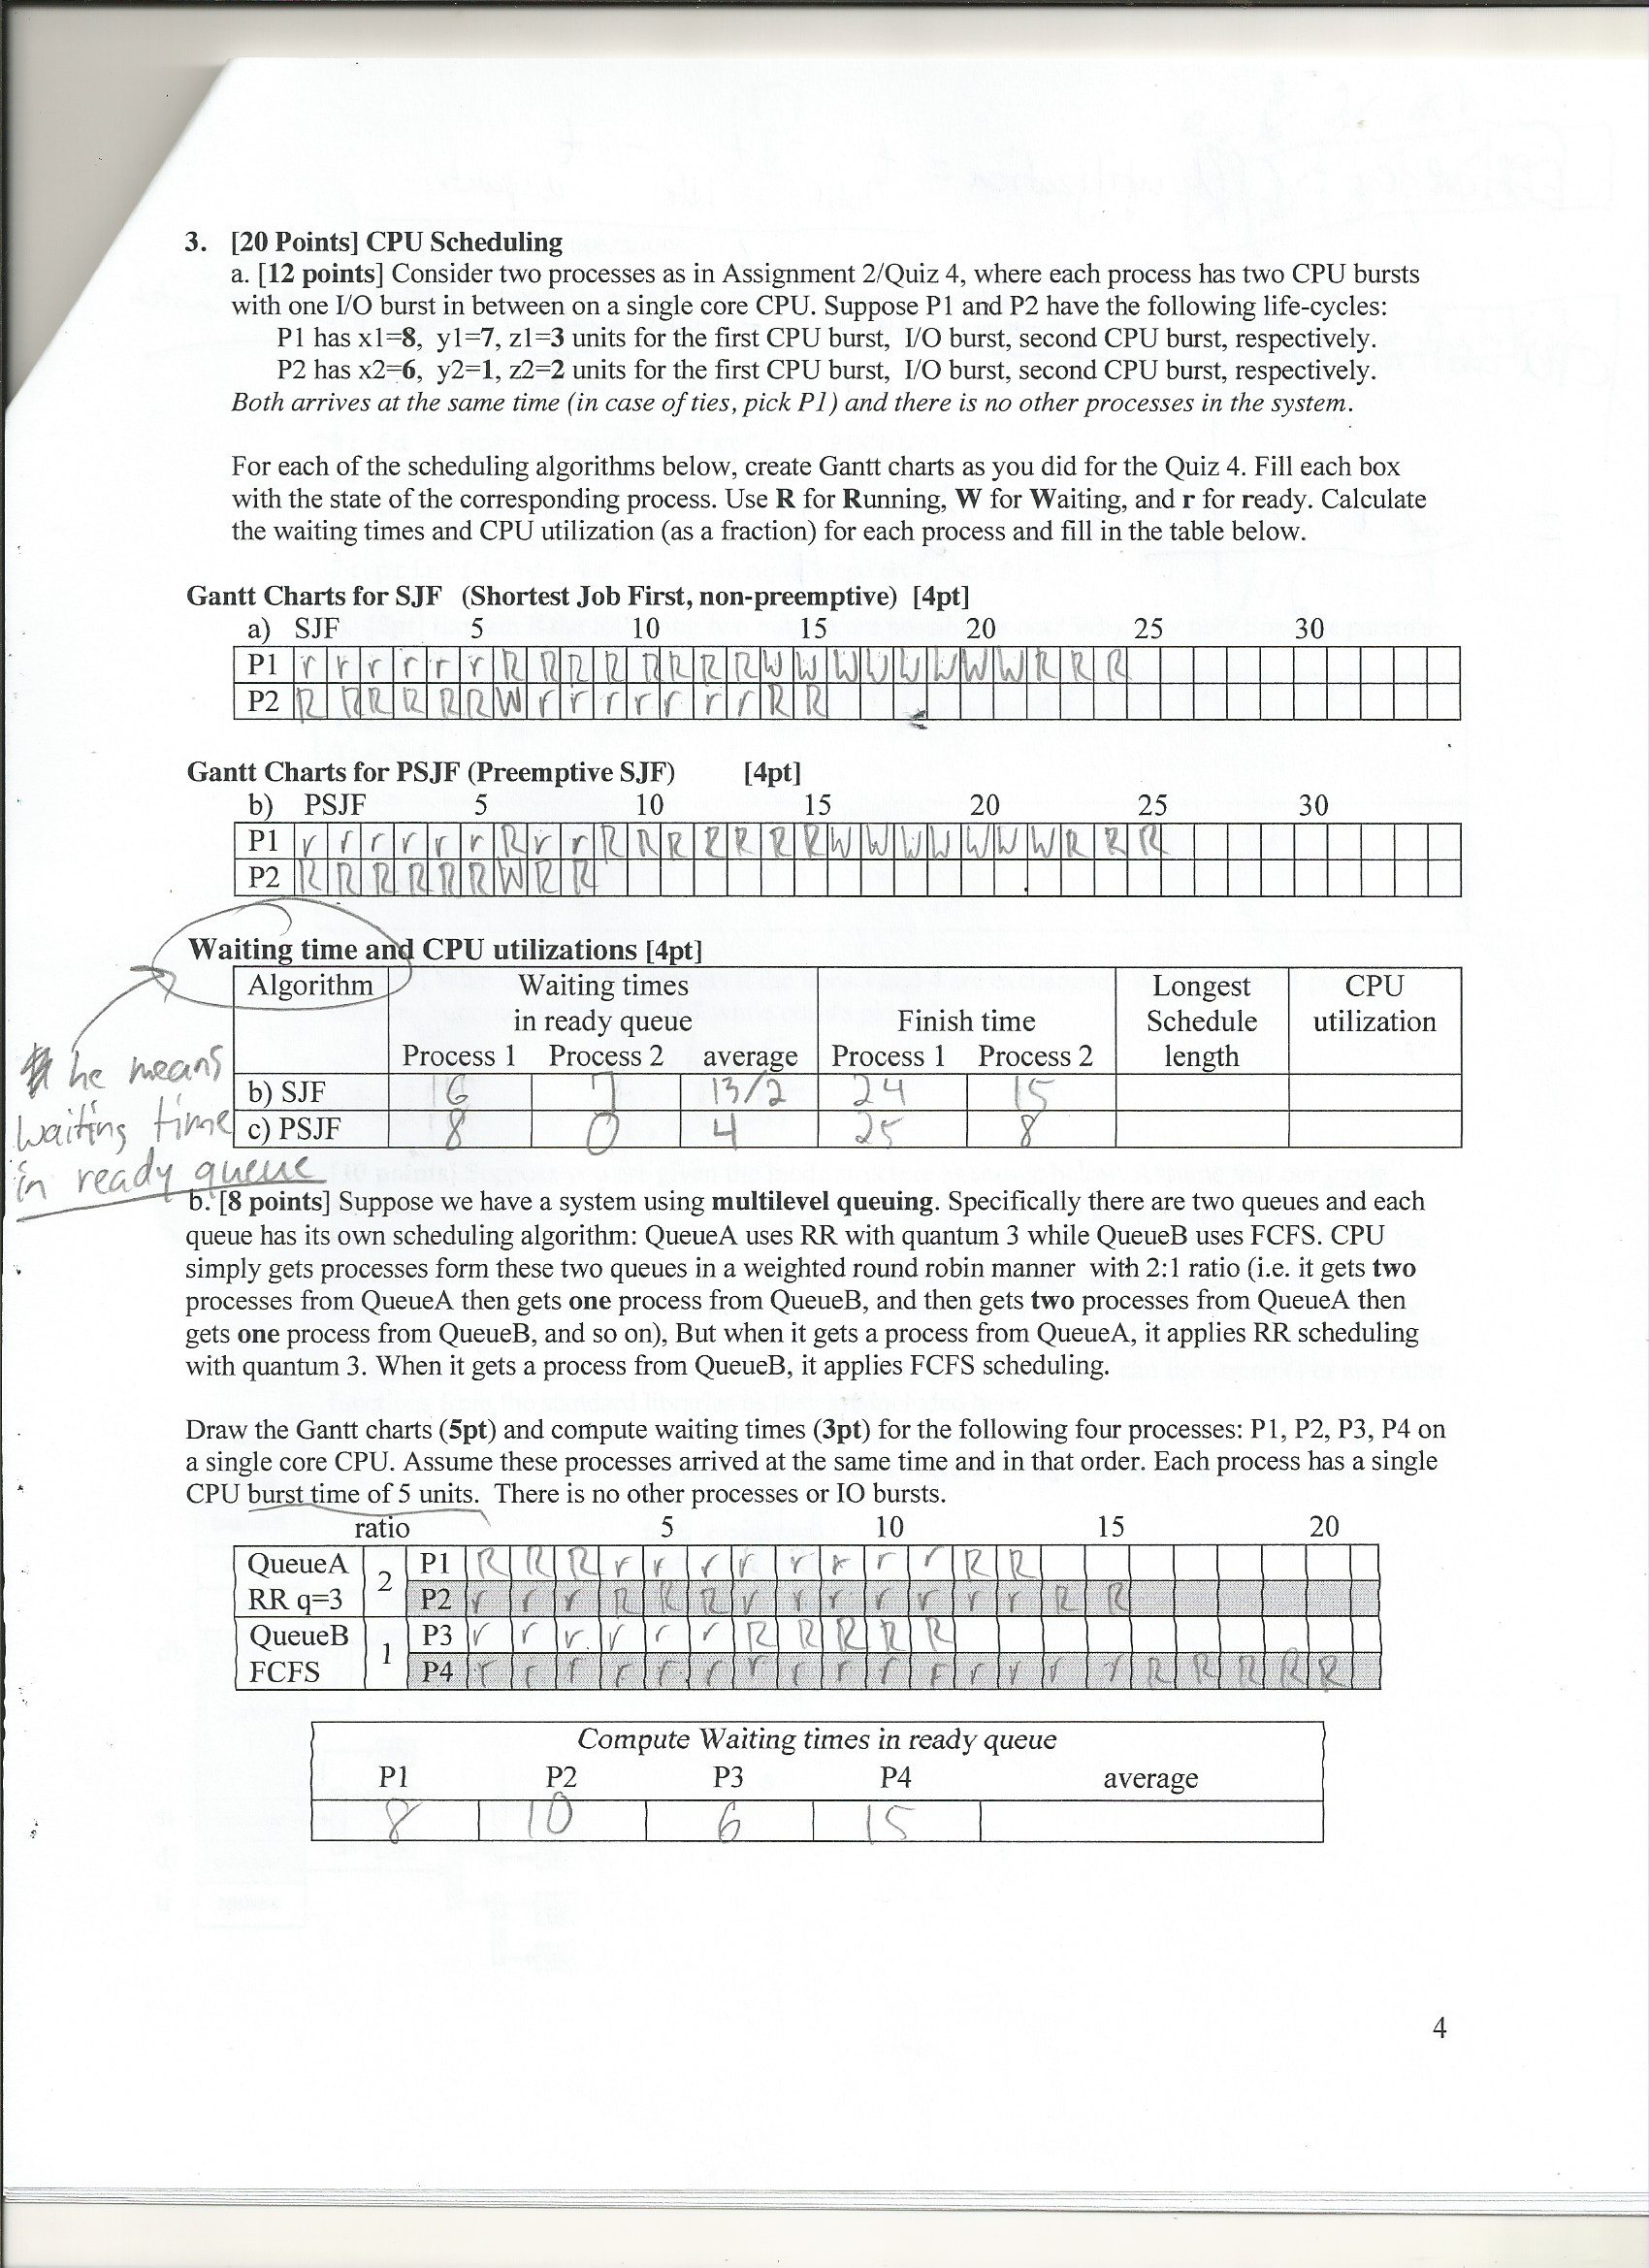 3. [20 Points] CPU Scheduling
a. [12 points] Consider two processes as in Assignment 2/Quiz 4, where each process has two CPU bursts
with one I/O burst in between on a single core CPU. Suppose P1 and P2 have the following life-cycles:
P1 has x1=8, y1=7, z1=3 units for the first CPU burst, I/O burst, second CPU burst, respectively.
P2 has x2=6, y2=1, z2=2 units for the first CPU burst, I/O burst, second CPU burst, respectively.
Both arrives at the same time (in case of ties, pick P1) and there is no other processes in the system.
For each of the scheduling algorithms below, create Gantt charts as you did for the Quiz 4. Fill each box
with the state of the corresponding process. Use R for Running, W for Waiting, and r for ready. Calculate
the waiting times and CPU utilization (as a fraction) for each process and fill in the table below.
Gantt Charts for SJF (Shortest Job First, non-preemptive) [4pt]
a) SJF 5 10 15 20 25 30
P1 r r r r r r R R R R R R R R W W W W W W W W R R R
P2 R R R R R R W r r r r r r r R R
Gantt Charts for PSJF (Preemptive SJF) [4pt]
b) PSJF 5 10 15 20 25 30
P1 r r r r r r R r r R R R R R R R W W W W W W W R R R
P2 R R R R R R W R R
Waiting time and CPU utilizations [4pt]
Algorithm Waiting times Longest CPU
in ready queue Finish time Schedule utilization
Process 1 Process 2 average Process 1 Process 2 length
b) SJF 6 7 13/2 24 15
c) PSJF 8 0 4 25 8
he means
waiting time
in ready queue
b. [8 points] Suppose we have a system using multilevel queuing. Specifically there are two queues and each
queue has its own scheduling algorithm: QueueA uses RR with quantum 3 while QueueB uses FCFS. CPU
simply gets processes form these two queues in a weighted round robin manner with 2:1 ratio (i.e. it gets two
processes from QueueA then gets one process from QueueB, and then gets two processes from QueueA then
gets one process from QueueB, and so on), But when it gets a process from QueueA, it applies RR scheduling
with quantum 3. When it gets a process from QueueB, it applies FCFS scheduling.
Draw the Gantt charts (5pt) and compute waiting times (3pt) for the following four processes: P1, P2, P3, P4 on
a single core CPU. Assume these processes arrived at the same time and in that order. Each process has a single
CPU burst time of 5 units. There is no other processes or IO bursts.
ratio 5 10 15 20
QueueA 2 P1 R R R r r r r r r r r R R
RR q=3 P2 r r r R R R r r r r r r r R R
QueueB 1 P3 r r r r r r R R R R R
FCFS P4 r r r r r r r r r r r r r r r R R R R R
Compute Waiting times in ready queue
P1 P2 P3 P4 average
8 10 6 15
4